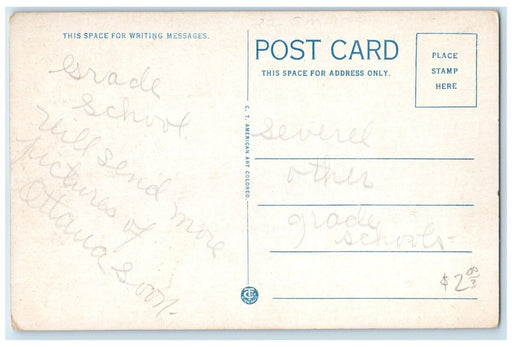 THIS SPACE FOR WRITING MESSAGES.
Grade
School
will send more
pictures of
Ottawa Soon.
C. T. AMERICAN ART COLORED.
POST CARD
THIS SPACE FOR ADDRESS ONLY.
PLACE
STAMP
HERE
Severel
other
grade
schools-
$2